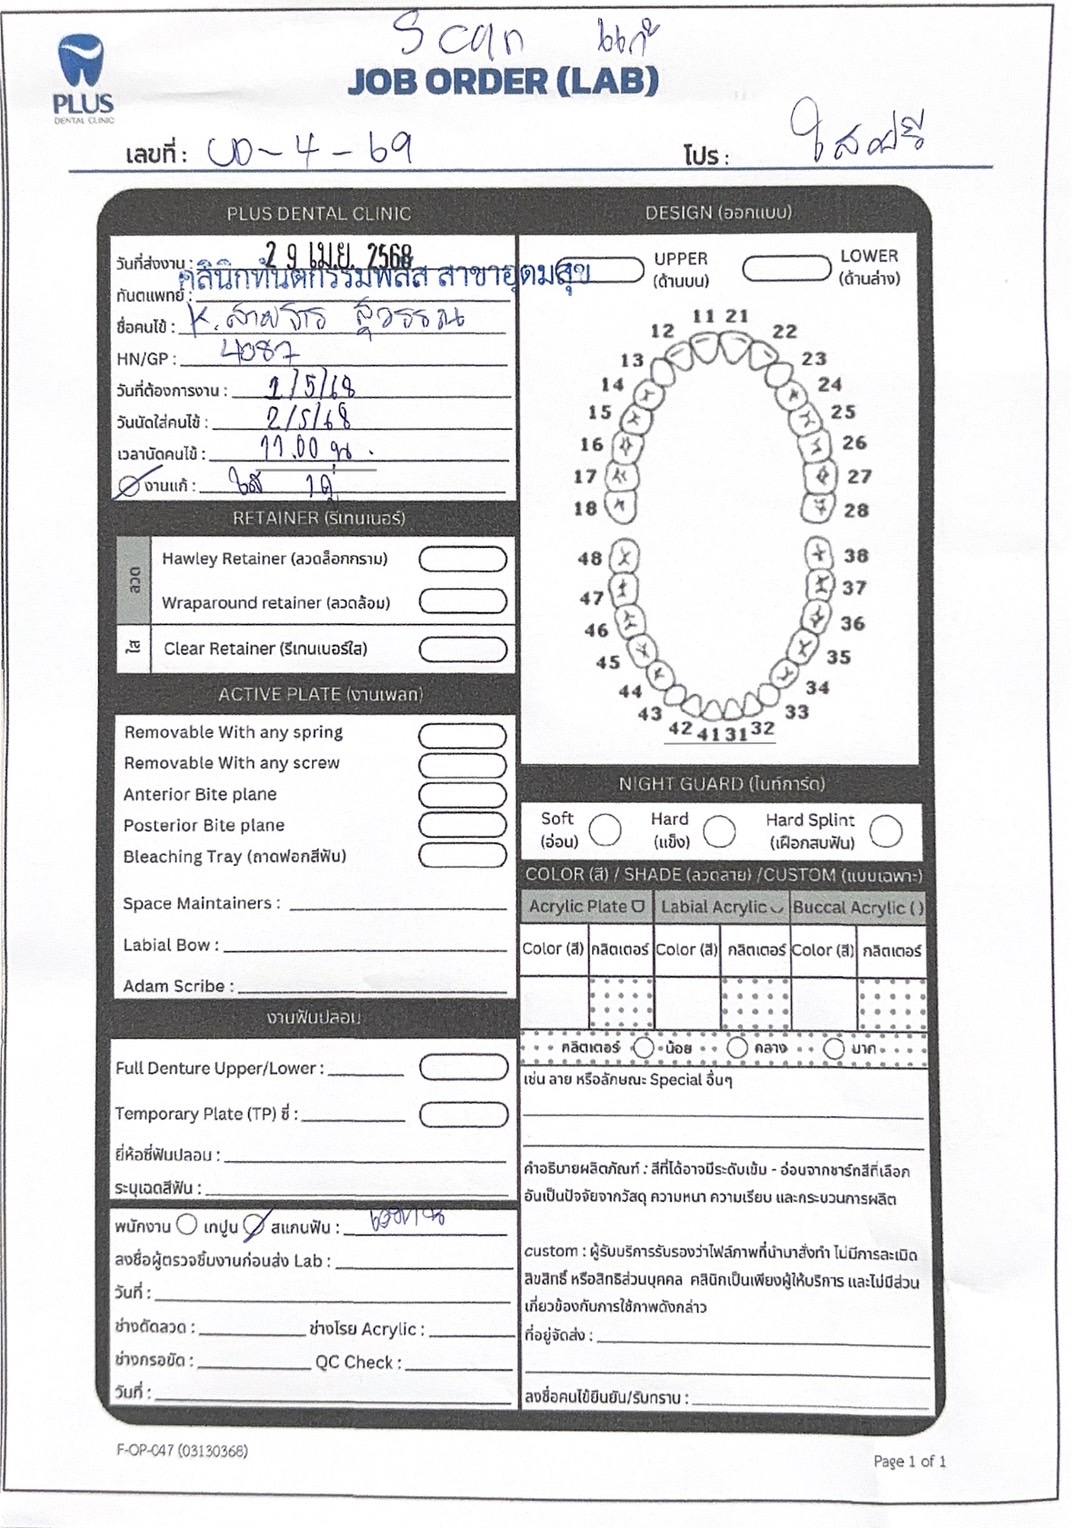 Scan แก้
PLUS
DENTAL CLINIC
JOB ORDER (LAB)
เลขที่ : UD-4-69
โปร : ใสฟรี
PLUS DENTAL CLINIC
วันที่ส่งงาน : 29 เม.ย. 2568
คลินิกทันตกรรมพลัส สาขาอุดมสุข
ทันตแพทย์ :
ชื่อคนไข้ : K.
HN/GP : 4087
วันที่ต้องการงาน : 1/5/68
วันนัดใส่คนไข้ : 2/5/68
เวลานัดคนไข้ : 11.00 น.
งานแก้ : ใส 1คู่
RETAINER (รีเทนเนอร์)
ลวด
Hawley Retainer (ลวดล็อกกราม)
Wraparound retainer (ลวดล้อม)
ใส
Clear Retainer (รีเทนเนอร์ใส)
ACTIVE PLATE (งานเพลท)
Removable With any spring
Removable With any screw
Anterior Bite plane
Posterior Bite plane
Bleaching Tray (ถาดฟอกสีฟัน)
Space Maintainers :
Labial Bow :
Adam Scribe :
งานฟันปลอม
Full Denture Upper/Lower :
Temporary Plate (TP) ซี่ :
ยี่ห้อซี่ฟันปลอม :
ระบุเฉดสีฟัน :
พนักงาน เทปูน สแกนฟัน :
ลงชื่อผู้ตรวจชิ้นงานก่อนส่ง Lab :
วันที่ :
ช่างดัดลวด : ช่างโรย Acrylic :
ช่างกรอขัด : QC Check :
วันที่ :
DESIGN (ออกแบบ)
UPPER
(ด้านบน)
LOWER
(ด้านล่าง)
11 21
12 22
13 23
14 24
15 25
16 26
17 27
18 28
48 38
47 37
46 36
45 35
44 34
43 33
42 41 31 32
NIGHT GUARD (ไนท์การ์ด)
Soft
(อ่อน)
Hard
(แข็ง)
Hard Splint
(เฝือกสบฟัน)
COLOR (สี) / SHADE (ลวดลาย) /CUSTOM (แบบเฉพาะ)
Acrylic Plate Labial Acrylic Buccal Acrylic ( )
Color (สี) กลิตเตอร์ Color (สี) กลิตเตอร์ Color (สี) กลิตเตอร์
กลิตเตอร์ น้อย กลาง มาก
เช่น ลาย หรือลักษณะ Special อื่นๆ
คำอธิบายผลิตภัณฑ์ : สีที่ได้อาจมีระดับเข้ม - อ่อนจากชาร์ทสีที่เลือก
อันเป็นปัจจัยจากวัสดุ ความหนา ความเรียบ และกระบวนการผลิต
custom : ผู้รับบริการรับรองว่าไฟล์ภาพที่นำมาสั่งทำ ไม่มีการละเมิด
ลิขสิทธิ์ หรือสิทธิส่วนบุคคล คลินิกเป็นเพียงผู้ให้บริการ และไม่มีส่วน
เกี่ยวข้องกับการใช้ภาพดังกล่าว
ที่อยู่จัดส่ง :
ลงชื่อคนไข้ยืนยัน/รับทราบ :
F-OP-047 (03130368)
Page 1 of 1